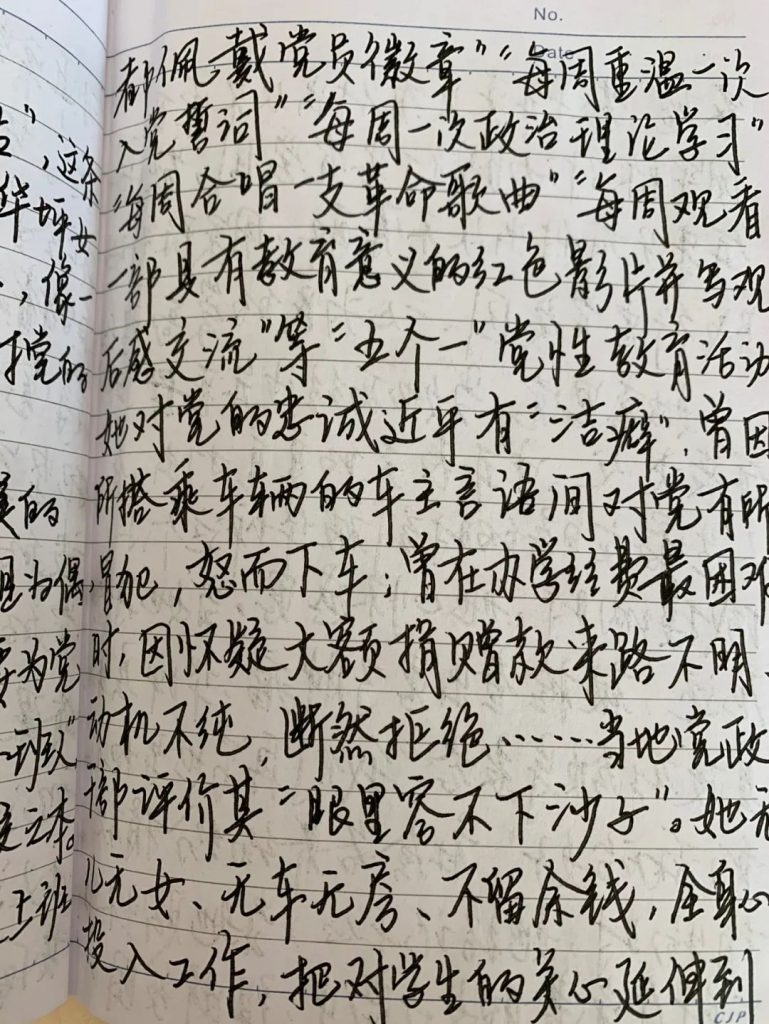 No.
Date
都佩戴党员徽章”“每周重温一次
入党誓词”“每周一次政治理论学习”
“每周合唱一支革命歌曲”“每周观看
一部具有教育意义的红色影片并写观
后感交流”等“五个一”党性教育活动
她对党的忠诚近乎有“洁癖”,曾因
所搭乘车辆的车主言语间对党有所
冒犯,怒而下车;曾在办学经费最困难
时,因怀疑大额捐赠款来路不明、
动机不纯,断然拒绝……当地党政
干部评价其“眼里容不下沙子”。她无
儿无女、无车无房、不留余钱,全身心
投入工作,把对学生的关心延伸到
CJP
”,这条
华坪女
,像一
党的
的
为偶
为党
一班级”
之本。
上班